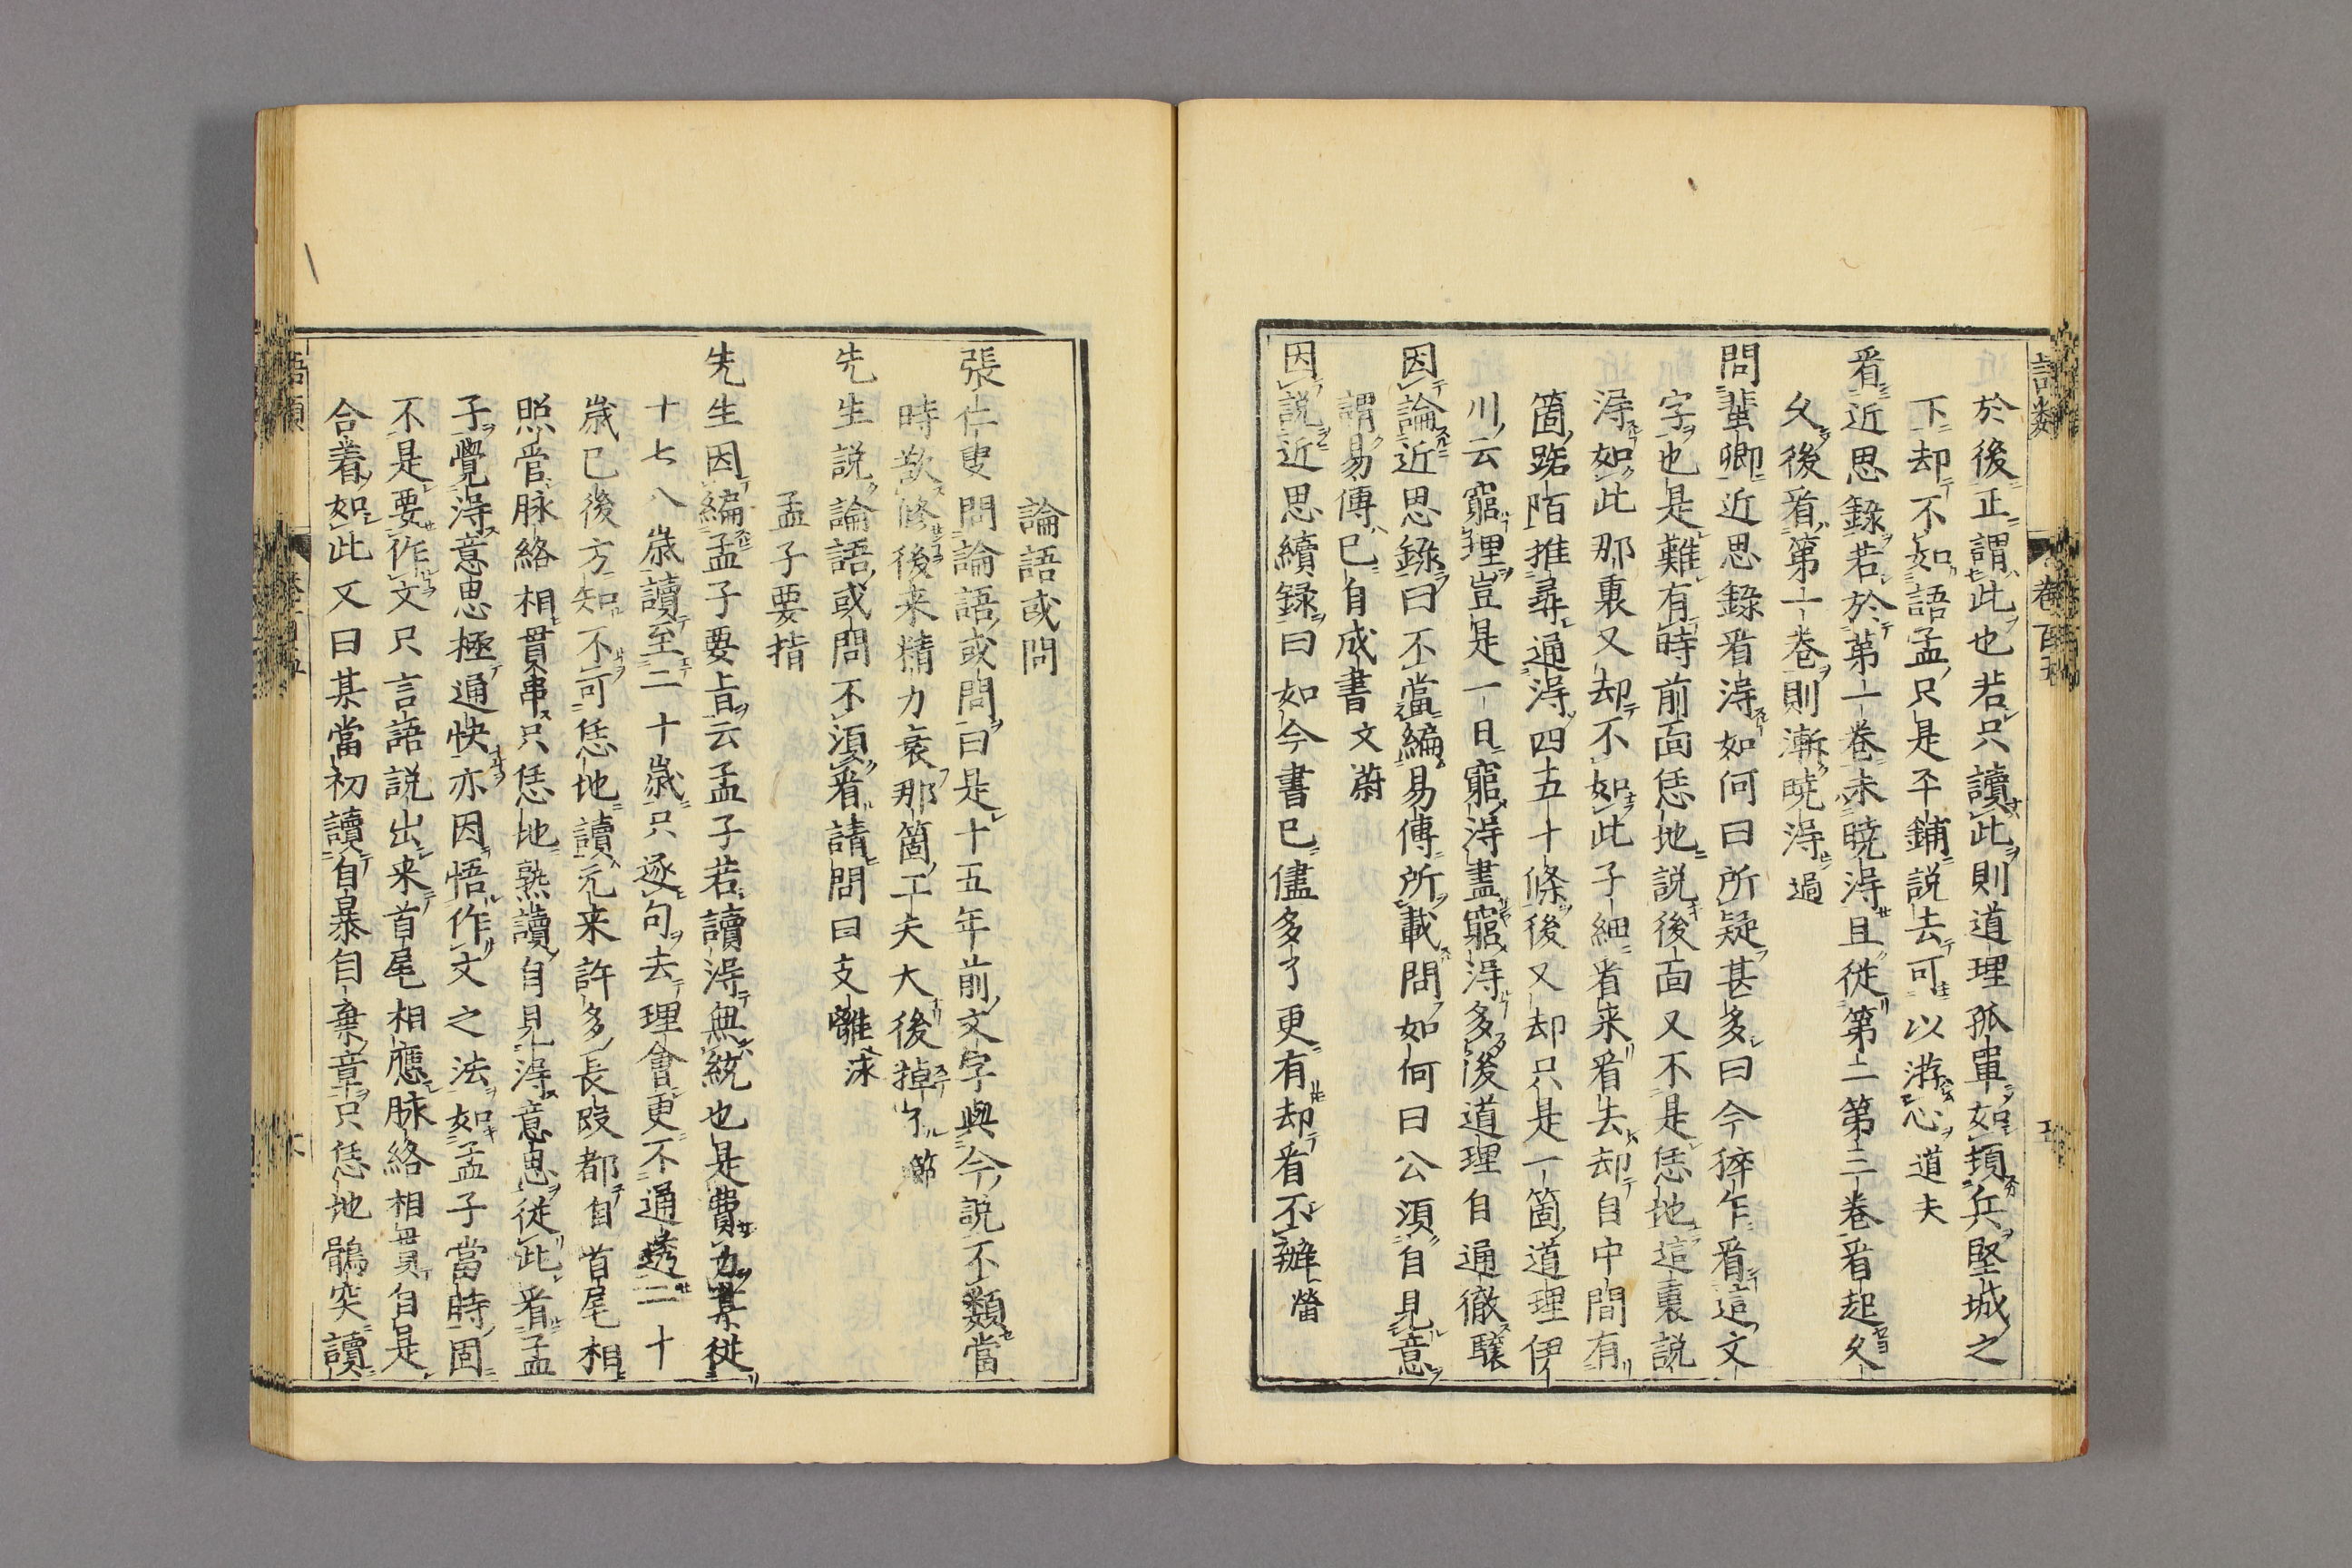 於後正謂此也若只讀此則道理孤單如頓兵堅城之
下却不如語孟只是平鋪說去可以游心道夫
看近思錄若於第一卷未曉得且從第二第三卷看起久
久後看第一卷則漸曉得過
問蜚卿近思錄看得如何曰所疑甚多曰今猝乍看這文
字也是難有時前面恁地說後面又不是恁地這裏說
得如此那裏又却不如此子細看来看去却自中間有
箇路陌推尋通得四五十條後又却只是一箇道理伊
川云窮理豈是一日窮得盡窮得多後道理自通徹驤
因論近思錄曰不當編易傳所載問如何曰公須自見意
謂易傳已自成書文蔚
因說近思續録曰如今書已儘多了更有却看不辦㽦
論語或問
張仁叟問論語或問曰是十五年前文字與今說不類當
時欲修後来精力衰那箇工夫大後掉了節
先生說論語或問不須看請問曰支離泳
孟子要指
先生因編孟子要旨云孟子若讀得無統也是費力某從
十七八歲讀至二十歲只逐句去理會更不通透二十
歲已後方知不可恁地讀元来許多長段都自首尾相
照管脉絡相貫串只恁地熟讀自見得意思從此看孟
子覺得意思極通快亦因悟作文之法如孟子當時固
不是要作文只言語說出来首尾相應脉絡相貫自是
合着如此又曰某當初讀自暴自棄章只恁地鶻突讀